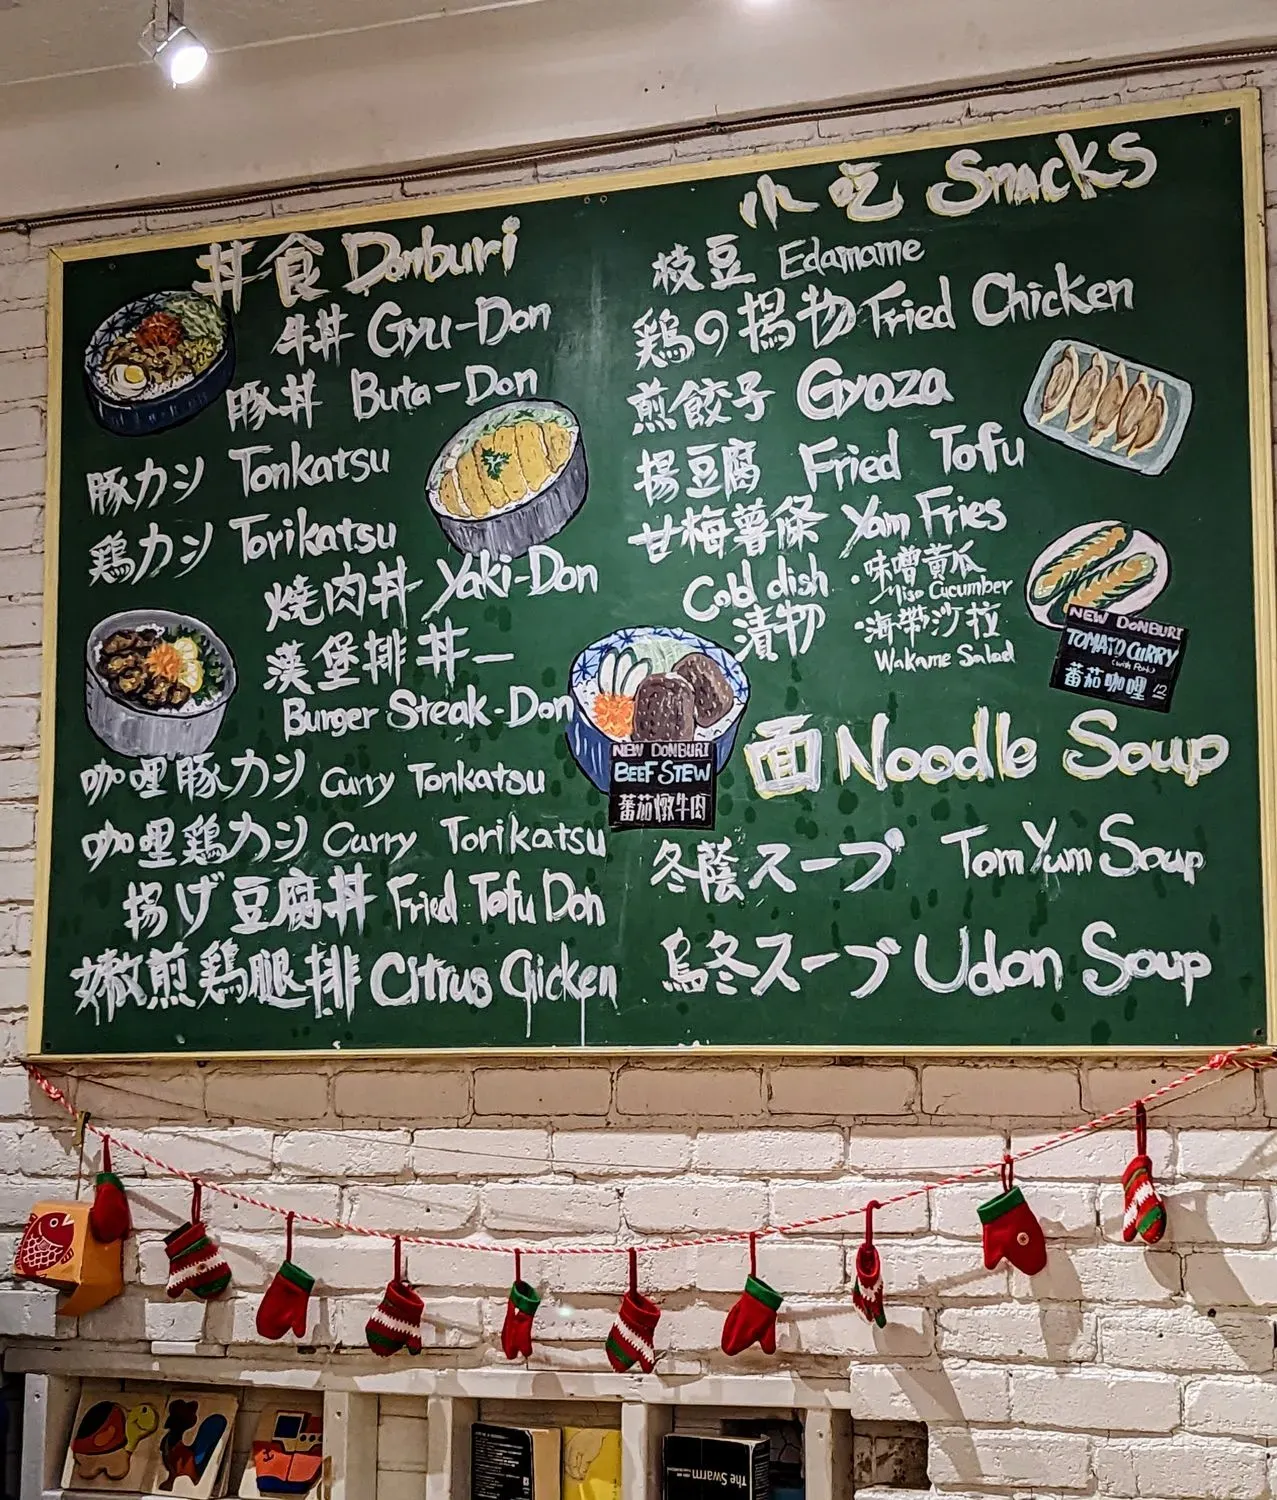 丼食 Donburi
牛丼 Gyu-Don
豚丼 Buta-Don
豚カツ Tonkatsu
鶏カツ Torikatsu
燒肉丼 Yaki-Don
漢堡排丼
Burger Steak-Don
咖哩豚カツ Curry Tonkatsu
咖哩鶏カツ Curry Torikatsu
揚げ豆腐丼 Fried Tofu Don
嫩煎鶏腿排 Citrus Chicken
NEW DONBURI
BEEF STEW
蕃茄燉牛肉
小吃 Snacks
枝豆 Edamame
鶏の揚物 Fried Chicken
煎餃子 Gyoza
揚豆腐 Fried Tofu
甘梅薯條 Yam Fries
Cold dish
漬物
·味噌黄瓜
Miso Cucumber
·海帶沙拉
Wakame Salad
NEW DONBURI
TOMATO CURRY
(with Pork)
蕃茄咖哩 12
面 Noodle Soup
冬蔭スープ Tom Yum Soup
烏冬スープ Udon Soup
The Swarm